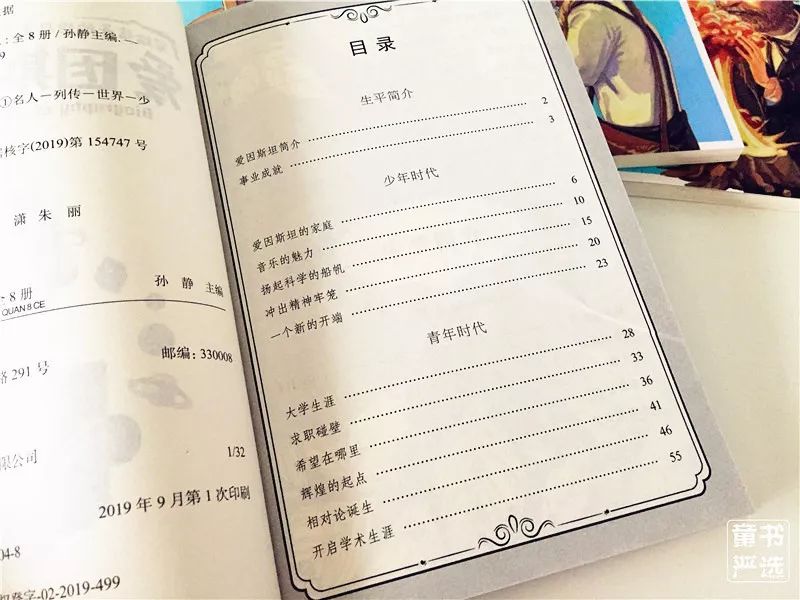 据
:全8册/孙静主编.—
9
①名人－列传－世界－少
核字(2019)第154747号
潇 朱 丽
孙 静 主编
8册
QUAN 8 CE
邮编:330008
路291号
限公司
1/32
2019年9月第1次印刷
04-8
登字-02-2019-499
目录
生平简介
爱因斯坦简介 2
事业成就 3
少年时代
爱因斯坦的家庭 6
音乐的魅力 10
扬起科学的船帆 15
冲出精神牢笼 20
一个新的开端 23
青年时代
大学生涯 28
求职碰壁 33
希望在哪里 36
辉煌的起点 41
相对论诞生 46
开启学术生涯 55
童书
严选